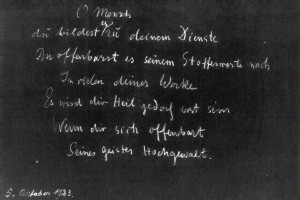 O Mensch
du bildest es zu deinem Dienste
Du offenbarst es seinem Stoffeswerte nach
In vielen deiner Werke
Es wird dir Heil jedoch erst sein
Wenn dir sich offenbart
Seines Geistes Hochgewalt.
5. October 1923.